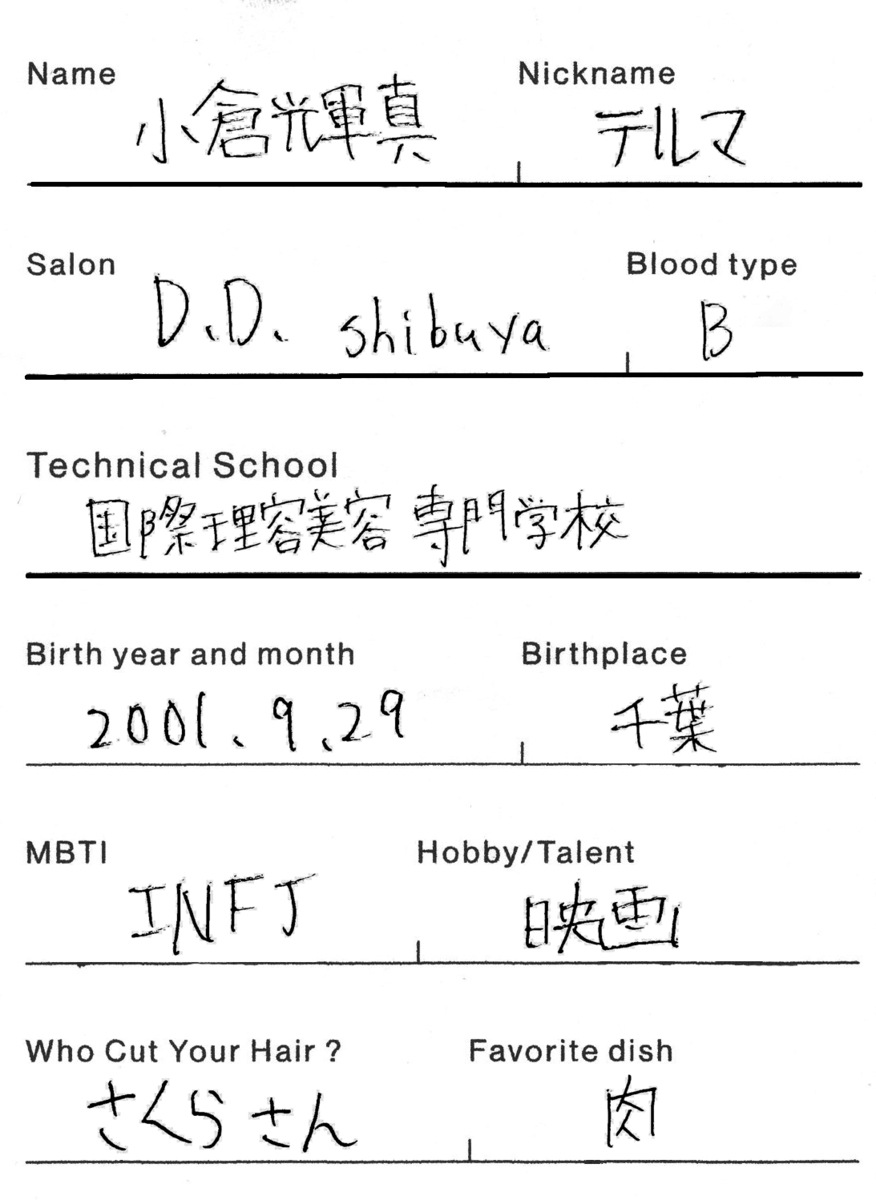 Name Nickname
小倉輝真 テルマ
Salon Blood type
D.D. shibuya B
Technical School
国際理容美容専門学校
Birth year and month Birthplace
2001.9.29 千葉
MBTI Hobby/Talent
INFJ 映画
Who Cut Your Hair ? Favorite dish
さくらさん 肉